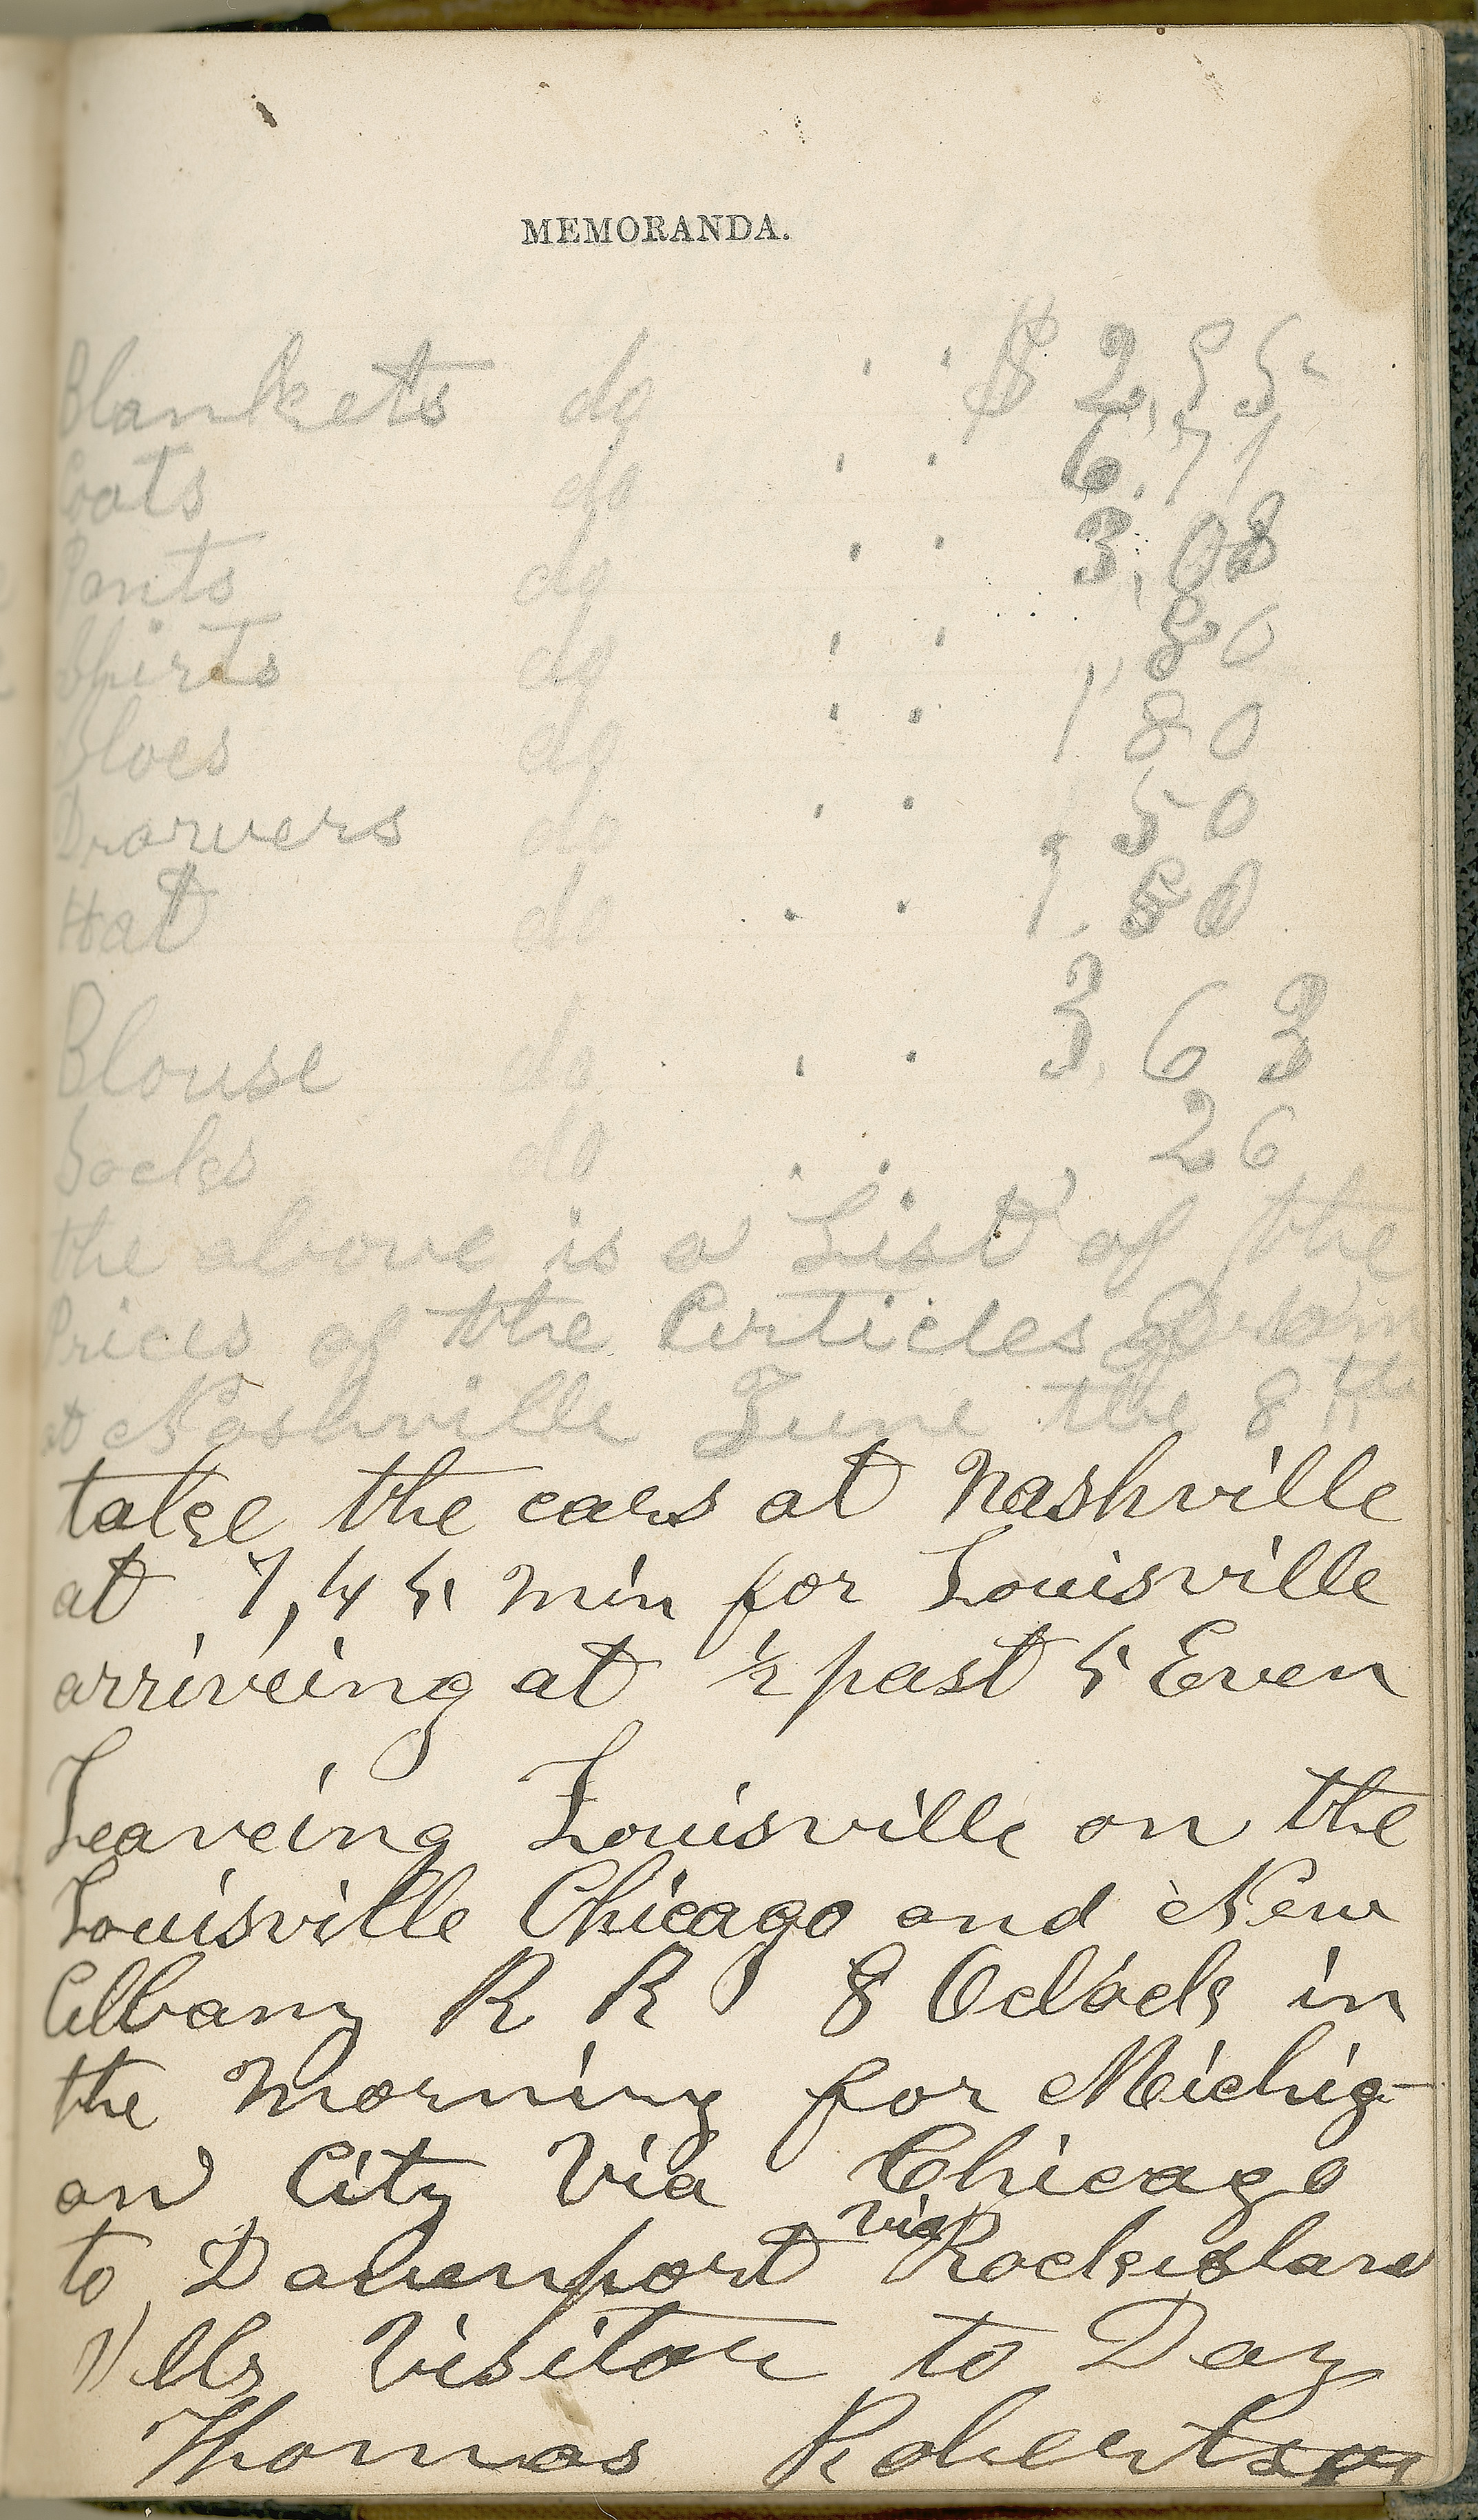 MEMORANDA.
Blankets do . . $ 2,55
Coats do . . 6.71
Pants do . . 3,08
Shirts do . . 1,80
Shoes do . . 1 80
Drawers do . . 50
Hat do . . 1.80
Blouse do . . 3,63
Socks do . . , 26
the above is a List of the
Prices of the Articles
at Nashville June the 8th
take the cars at Nashville
at 7,45 min for Louisville
arriveing at ½ past 5 Even
Leaveing Louisville on the
Louisville Chicago and New
Albany R R 8 Oclock in
the Morning for Michig-
an City Via Chicago
to Davenport via Rockisland
Ills Visitor to Day
Thomas Robertson